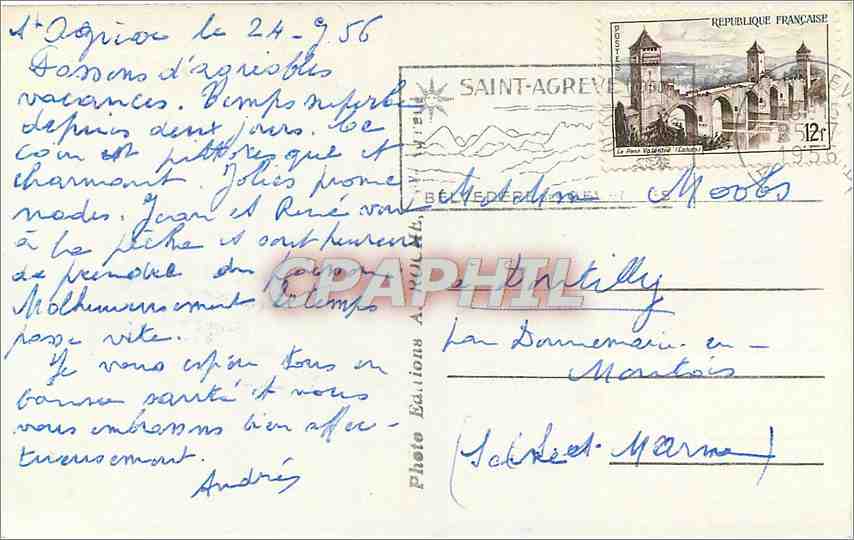 St Agrève le 24-9.56
Passons d'agréables
vacances. Temps superbe
depuis deux jours. Ce
coin est pittoresque et
charmant. Jolies prome
nades. Jean et René vont
à la pêche et sont heureux
de prendre du poisson.
Malheureusement le temps
passe vite.
Je vous espère tous en
bonne santé et nous
vous embrassons bien affec-
tueusement.
Andrée
Photo Editions A. ROCHE,
SAINT-AGREVE
BELVEDERE
REPUBLIQUE FRANÇAISE
POSTES
12f
Le Pont Valentré (Cahors)
1956
M et Mme Moobs
à Dontilly
par Donnemarie-en-
Montois
(Seine et Marne)
CPAPHIL